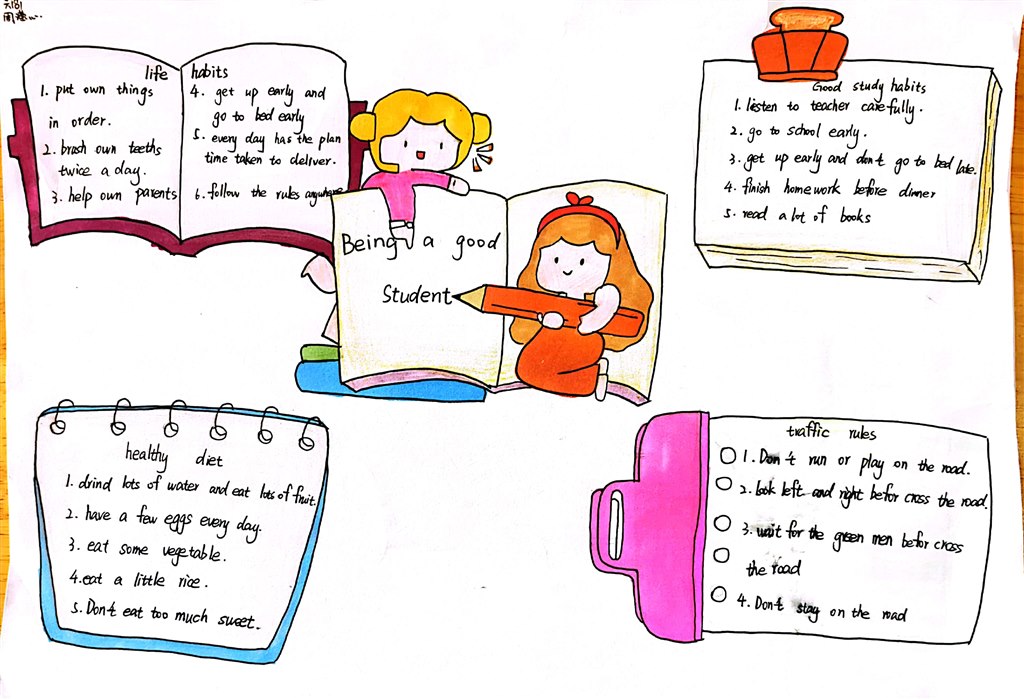 life habits
1. put own things
in order.
2. brush own teeths
twice a day.
3. help own parents
4. get up early and
go to bed early
5. every day has the plan
time taken to deliver.
6. follow the rules anywhere
Being a good
Student
Good study habits
1. listen to teacher carefully.
2. go to school early.
3. get up early and don't go to bed late.
4. finish homework before dinner
5. read a lot of books
healthy diet
1. drind lots of water and eat lots of fruit.
2. have a few eggs every day.
3. eat some vegetable.
4. eat a little rice.
5. Don't eat too much sweet.
traffic rules
1. Don't run or play on the road.
2. look left and right befor cross the road.
3. wait for the green men befor cross
the road
4. Don't stay on the road